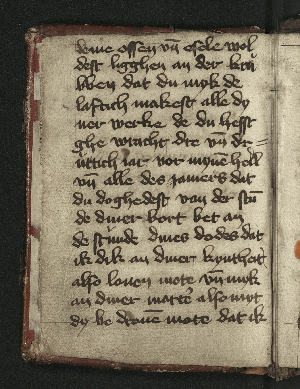 deme ossen vn̄ esele wol
dest ligghen an der krü
bben dat du myk de
laftich makest alle dy
ner werke de du hefst
ghe wracht dre vn̄ dr
ittich iar vor myne heil
vn̄ alle des iamers dat
du doghedest van der stū
de diner bort bet an
de stunde dines dodes dat
ik dik an diner kyntheit
also louen mote vn̄ myk
an diner marter also myt
dy be drouen mote dat ik